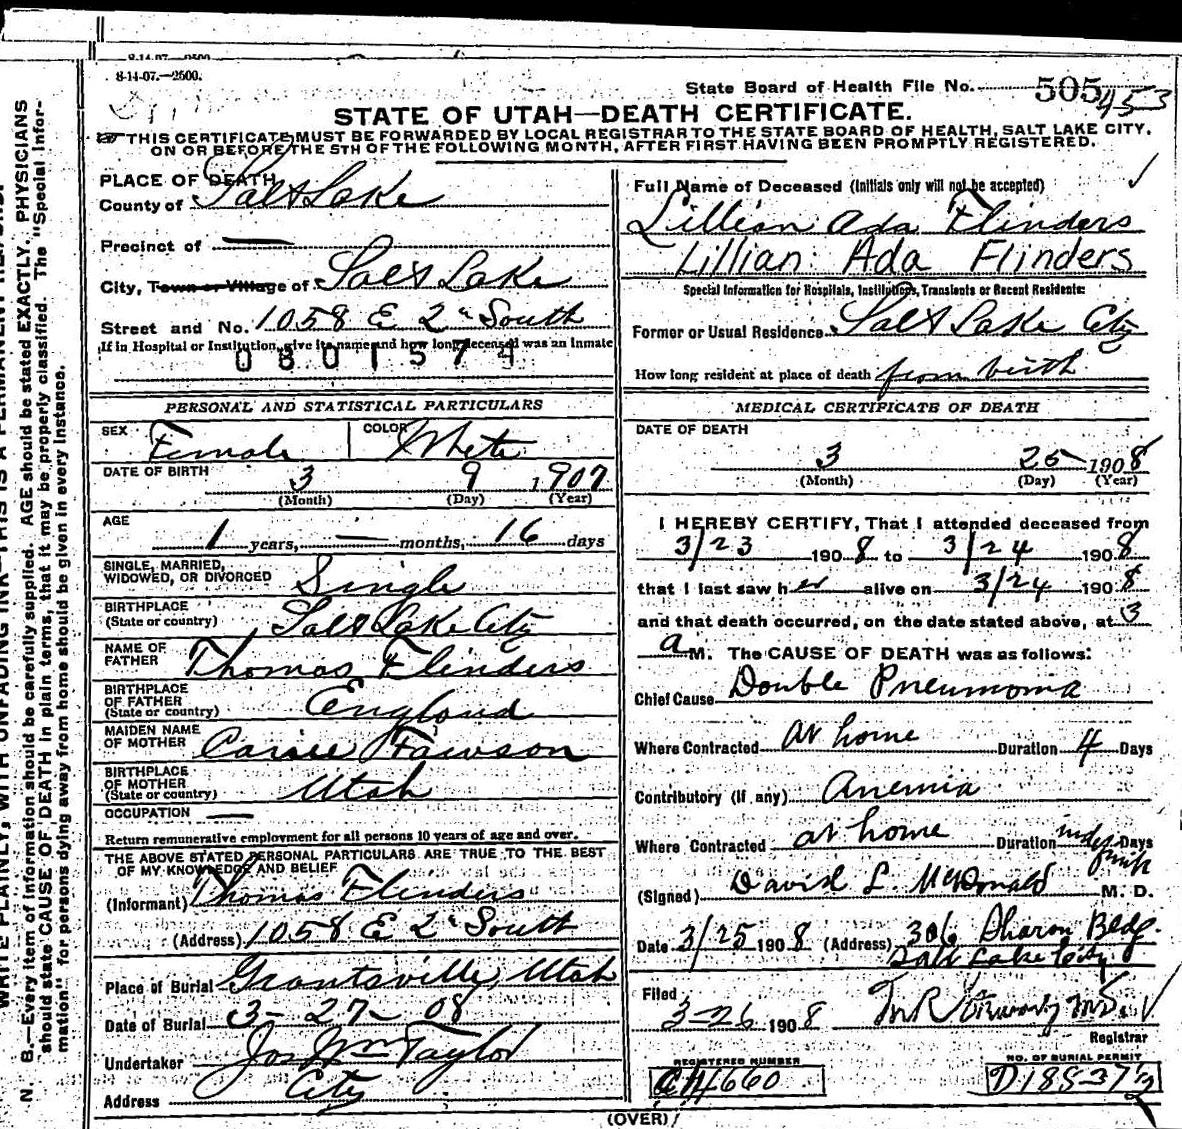 8-14-07.—2500.
8-14-07.—2500.
State Board of Health File No. 505 453
STATE OF UTAH—DEATH CERTIFICATE.
☞ THIS CERTIFICATE MUST BE FORWARDED BY LOCAL REGISTRAR TO THE STATE BOARD OF HEALTH, SALT LAKE CITY,
ON OR BEFORE THE 5TH OF THE FOLLOWING MONTH, AFTER FIRST HAVING BEEN PROMPTLY REGISTERED.
PLACE OF DEATH
County of Salt Lake
Precinct of —
City, Town or Village of Salt Lake
Street and No. 1058 E 2nd South
If in Hospital or Institution, give its name and how long deceased was an Inmate
0801574
PERSONAL AND STATISTICAL PARTICULARS
SEX Female COLOR White
DATE OF BIRTH 3 9 1907
(Month) (Day) (Year)
AGE
1 years, — months, 16 days
SINGLE, MARRIED,
WIDOWED, OR DIVORCED Single
BIRTHPLACE
(State or country) Salt Lake City
NAME OF
FATHER Thomas Flinders
BIRTHPLACE
OF FATHER
(State or country) England
MAIDEN NAME
OF MOTHER Carrie Fawson
BIRTHPLACE
OF MOTHER
(State or country) Utah
OCCUPATION —
Return remunerative employment for all persons 10 years of age and over.
THE ABOVE STATED PERSONAL PARTICULARS ARE TRUE TO THE BEST
OF MY KNOWLEDGE AND BELIEF
(Informant) Thomas Flinders
(Address) 1058 E 2nd South
Place of Burial Grantsville, Utah
Date of Burial 3-27-08
Undertaker Jos Wm Taylor
Address City
Full Name of Deceased (Initials only will not be accepted)
Lillian Ada Flinders
Lillian Ada Flinders
Special Information for Hospitals, Institutions, Transients or Recent Residents:
Former or Usual Residence Salt Lake City
How long resident at place of death from birth
MEDICAL CERTIFICATE OF DEATH
DATE OF DEATH
3 25 1908
(Month) (Day) (Year)
I HEREBY CERTIFY, That I attended deceased from
3/23 1908 to 3/24 1908
that I last saw her alive on 3/24 1908
and that death occurred, on the date stated above, at 3
a M. The CAUSE OF DEATH was as follows:
Chief Cause Double Pneumonia
Where Contracted At home Duration 4 Days
Contributory (if any) Anemia
Where Contracted at home Duration Days
(Signed) David L. McDonald M. D.
Date 3/25 1908 (Address) 306 Sharon Bldg.
Salt Lake City
Filed
3-26 1908
Registrar
REGISTERED NUMBER
660
NO. OF BURIAL PERMIT
(OVER)
N. B.—Every item of information should be carefully supplied. AGE should be stated EXACTLY. PHYSICIANS
should state CAUSE OF DEATH in plain terms, that it may be properly classified. The "Special Infor-
mation" for persons dying away from home should be given in every instance.